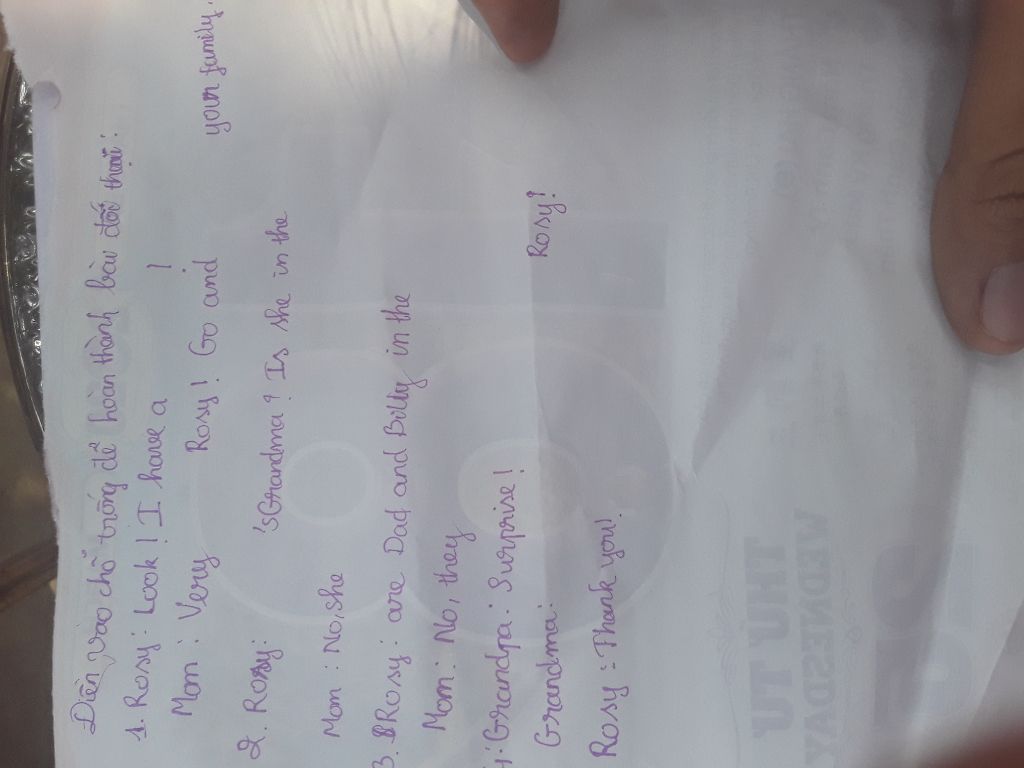 Điền vào chỗ trống để hoàn thành bài đối thoại:
1. Rosy: Look! I have a !
Mom: Very Rosy! Go and your family.
2. Rosy: 's Grandma? Is she in the
Mom: No, she
3. Rosy: are Dad and Billy in the
Mom: No, they
4: Grandpa: Surprise!
Grandma: Rosy!
Rosy: Thank you!
THỨ TƯ
WEDNESDAY